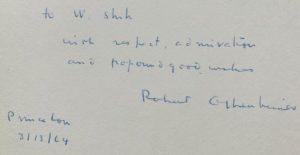 to W. Shih
with respect, admiration
and profound good wishes
Robert Oppenheimer
Princeton
3/13/64